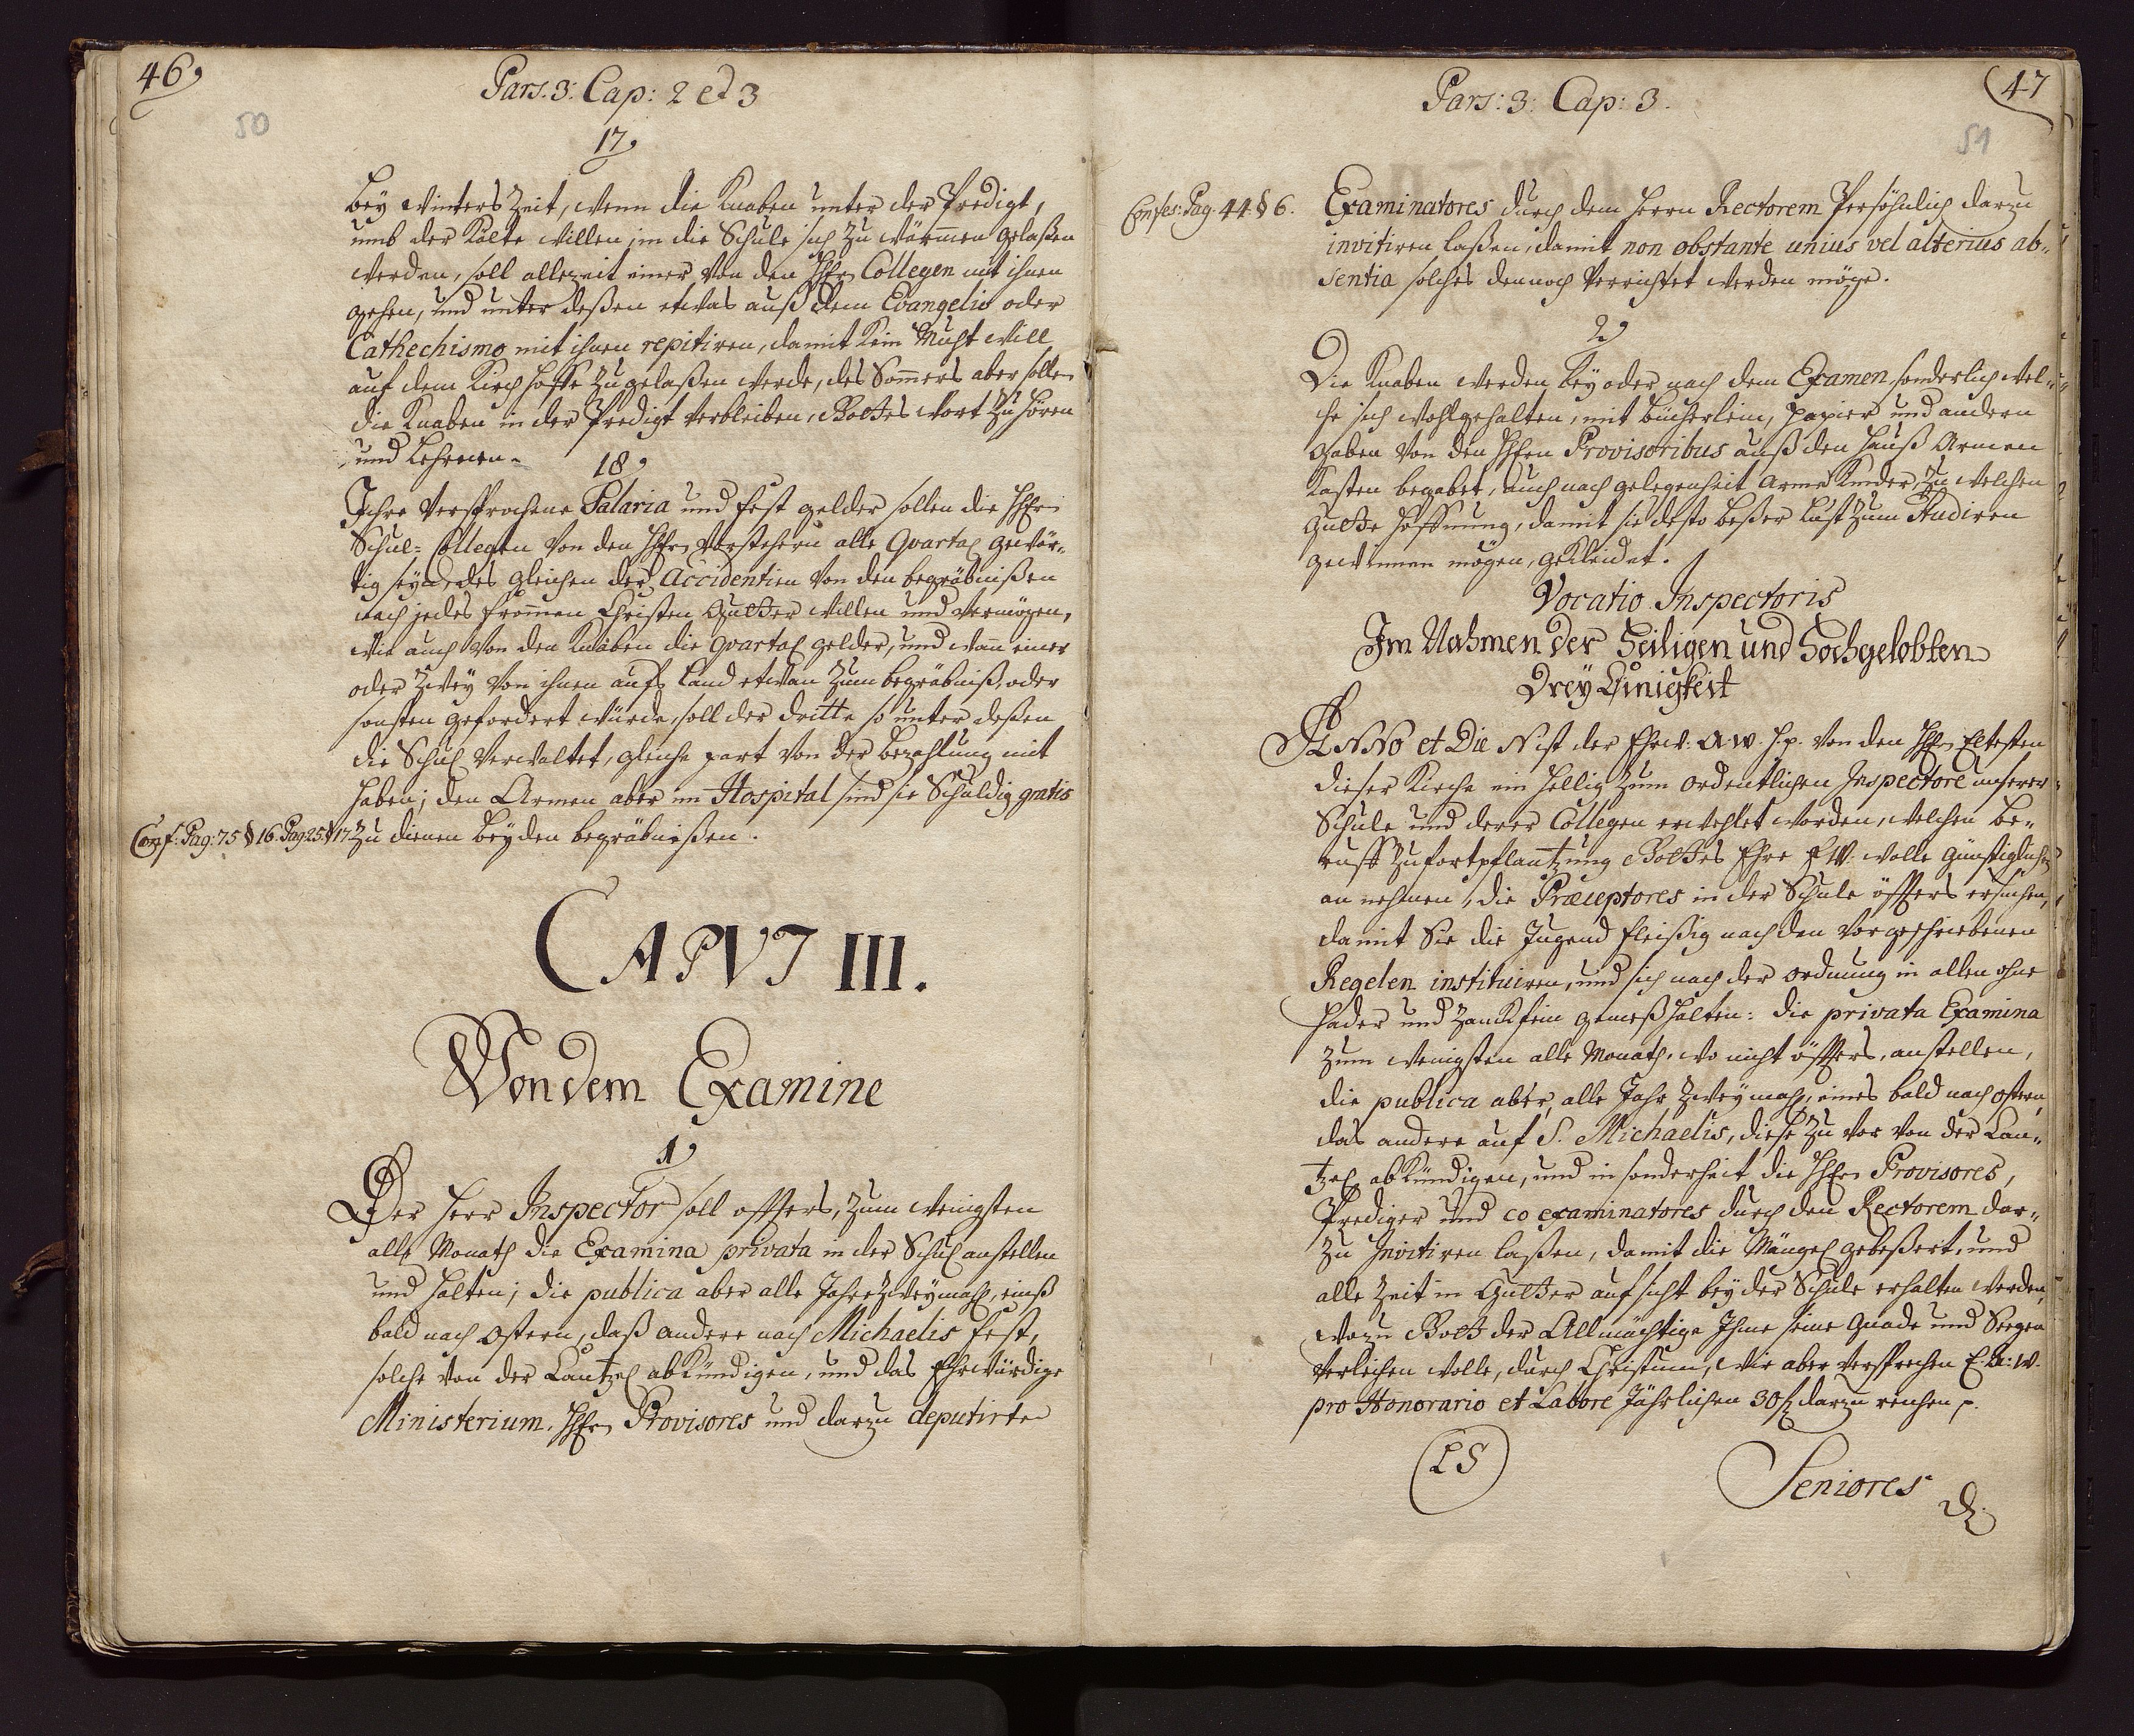 46,
50
Pars. 3: Cap: 2 et 3
17,
bey Winters Zeit, wenn die Knaben unter der Predigt,
umb der Kälte willen, in die Schule sich zu wärmen gelaßen
werden, soll allezeit einer von den HHrn Collegen mit ihnen
gehen, und unter deßen etwas auß dem Evangelio oder
Cathechismo mit ihnen repitiren, damit kein Muhtwill
auf dem Kirchhoffe zugelaßen werde, des Sommers aber sollen
die Knaben in der Predigt verbleiben, Gottes Wort zu hören
und Lehrnen.
18,
Ihre versprochene Salaria und fest gelder sollen die HHrn
Schul-Collegen von den HHrn Vorstehern alle Quartal gewär-
tig seyn, des gleichen der Accidentien von den begräbnißen
nach jedes frommen Christen Gutter willen und vermögen,
wie auch von den Knaben die Quartal gelder, und wann einer
oder Zwey von ihnen aufs Land etwan zum begräbniß, oder
sonsten gefordert würde, soll der dritte so unter deßen
die Schul verwaltet, gleiche part von der bezahlung mit
haben; den Armen aber im Hospital sind sie Schuldig gratis
Conf: Pag: 75 § 16. Pag 25 § 17 zu dienen bey den begräbnißen.
CAPVT III.
Von dem Examine
1,
Der Herr Inspector soll offters, zum wenigsten
alle Monath die Examina privata in der Schul anstellen
und halten; die publica aber alle Jahr Zweymahl, einß
bald nach Ostern, daß andere nach Michaelis fest,
solche von der Cantzel abkündigen, und das Ehrwürdige
Ministerium. HHrn Provisores und darzu deputirte
47
51
Pars: 3: Cap: 3.
Confes: Pag. 44. § 6.
Examinatores durch dem Herrn Rectorem Persöhnlich darzu
invitiren laßen, damit non obstante unius vel alterius ab-
sentia solches dennoch verrichtet werden möge.
2,
Die Knaben werden bey oder nach dem Examen sonderlich wel-
che sich wohlgehalten, mit bücherlein, papier und andern
gaben von den HHrn Provisoribus auß den Hauß Armen
Kasten begabet, auch nach gelegenheit arme Kinder, zu welchen
gutte Hoffnung, damit sie desto beßer Lust zum Studiren
gewinnen mögen, gekleidet.
Vocatio Inspectoris
Im Nahmen der Heiligen und Hochgelobten
Drey Einigkeit
ANNO et Die N ist der Ehrw: AW. H. p. von den HHrn Eltesten
dieser Kirche ein hellig zum ordentlichen Inspectore unserer
Schule und derer Collegen erwehlet worden, welchen be-
ruff zufortpflantzung Gottes Ehre EW. wolle günstiglichen
an nehmen, die Præceptores in der Schule öffters ersuchen,
damit Sie die Jugend fleißig nach den vorgeschriebenen
Regelen instituiren, und sich nach der ordnung in allen ohne
hader und Zanck fein gemeß halten: die privata Examina
zum wenigsten alle Monath, wo nicht öffters, anstellen,
die publica aber, alle Jahr Zweymahl, eines bald nach ostern,
das andere auf S. Michaelis, diese zu vor von der Can-
tzel abkündigen, und in sonderheit die HHrn Provisores,
Prediger und co examinatores durch den Rectorem dar-
zu Invitiren laßen, damit die Mängel gebeßert, und
alle Zeit in Gutter auf sicht bey der Schule erhalten werden,
wozu Gott der Allmächtige Ihme seine Gnade und Seegen
verleihen wolle, durch Christum, Wir aber versprechen E. A: W.
pro Honorario et Labore Jährlichen 30 fl darzu reichen p.
LS
Seniores